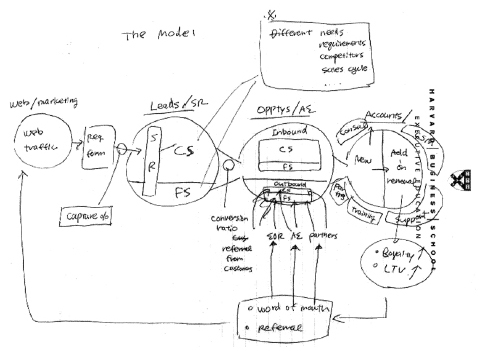 The Model
Different needs
requirements
competitors
sales cycle
web/marketing
Leads/SR
Opptys/AE
Accounts/
web
traffic
Req
form
S
R
CS
FS
Capture %
Inbound
CS
FS
Outbound
CS
FS
Consult
New
Add-
on
renewal
Training
Support
conversion
ratio
referral
from
Customs
EDR
AE
partners
Loyalty
LTV
word of mouth
referral
HARVARD BUSINESS SCHOOL
EXECUTIVE EDUCATION